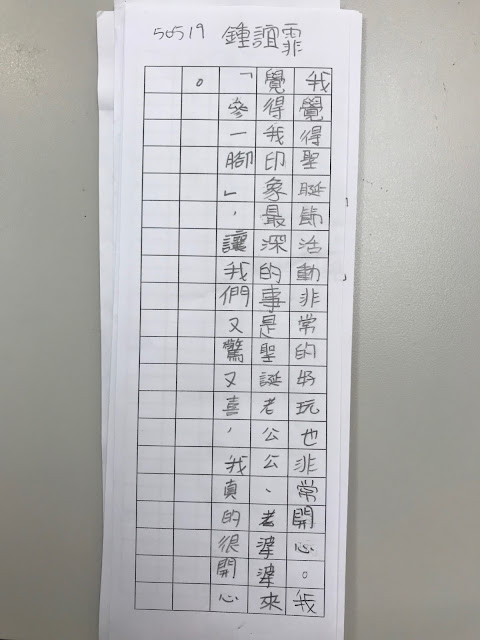 50519 鍾誼霏
我覺得聖誕節活動非常的好玩也非常開心。我
覺得我印象最深的事是聖誕老公公、老婆婆來
「參一腳」，讓我們又驚又喜，我真的很開心
。